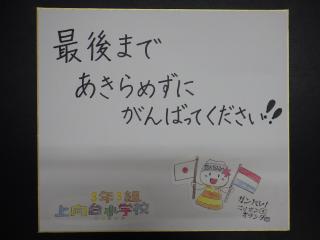 最後まで
あきらめずに
がんばってください!!
3年1組
上向台小学校
ガンバレ!
オランダ